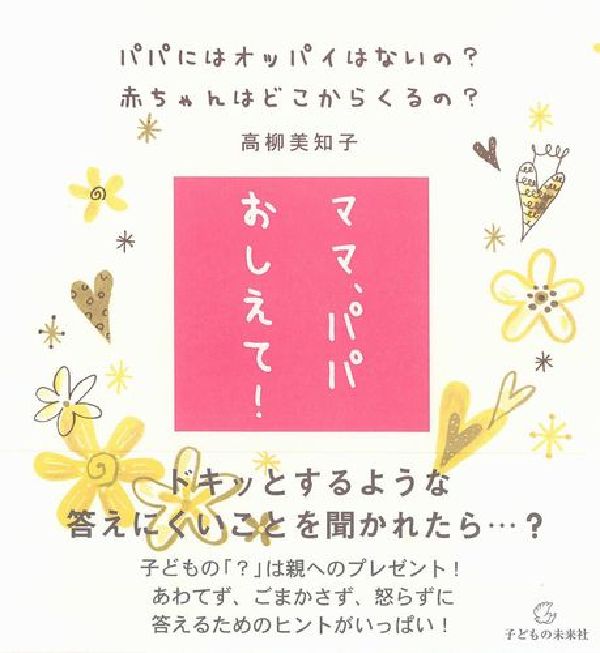 パパにはオッパイはないの？
赤ちゃんはどこからくるの？
高柳美知子
ママ、パパ
おしえて！
ドキッとするような
答えにくいことを聞かれたら…？
子どもの「？」は親へのプレゼント！
あわてず、ごまかさず、怒らずに
答えるためのヒントがいっぱい！
子どもの未来社